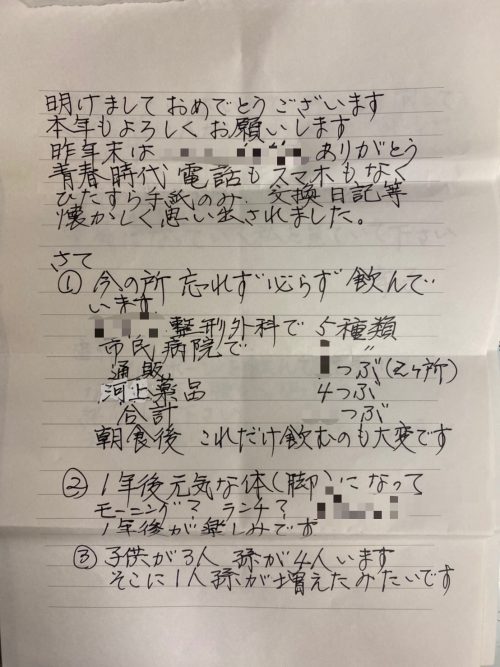 明けまして おめでとうございます
本年もよろしくお願いします
昨年末は ありがとう
青春時代 電話も スマホもなく
ひたすら手紙のみ. 交換日記等
懐かしく思い出されました。
さて
① 今の所 忘れず必らず 飲んで
います.
整型外科で 5種類
市民病院で 〃
通販 つぶ(2ヶ所)
河上薬品 4つぶ
合計 つぶ
朝食後 これだけ飲むのも大変です
② 1年後元気な体(脚)になって
モーニング? ランチ?
1年後が楽しみです
③ 子供が3人 孫が4人います
そこに1人孫が増えたみたいです